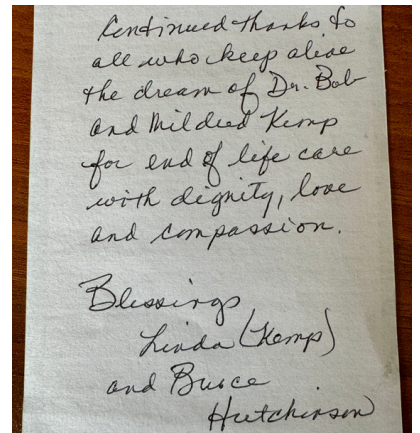 Continued thanks to
all who keep alive
the dream of Dr. Bob
and Mildred Kemp
for end of life care
with dignity, love
and compassion.
Blessings
Linda (Kemp)
and Bruce
Hutchinson